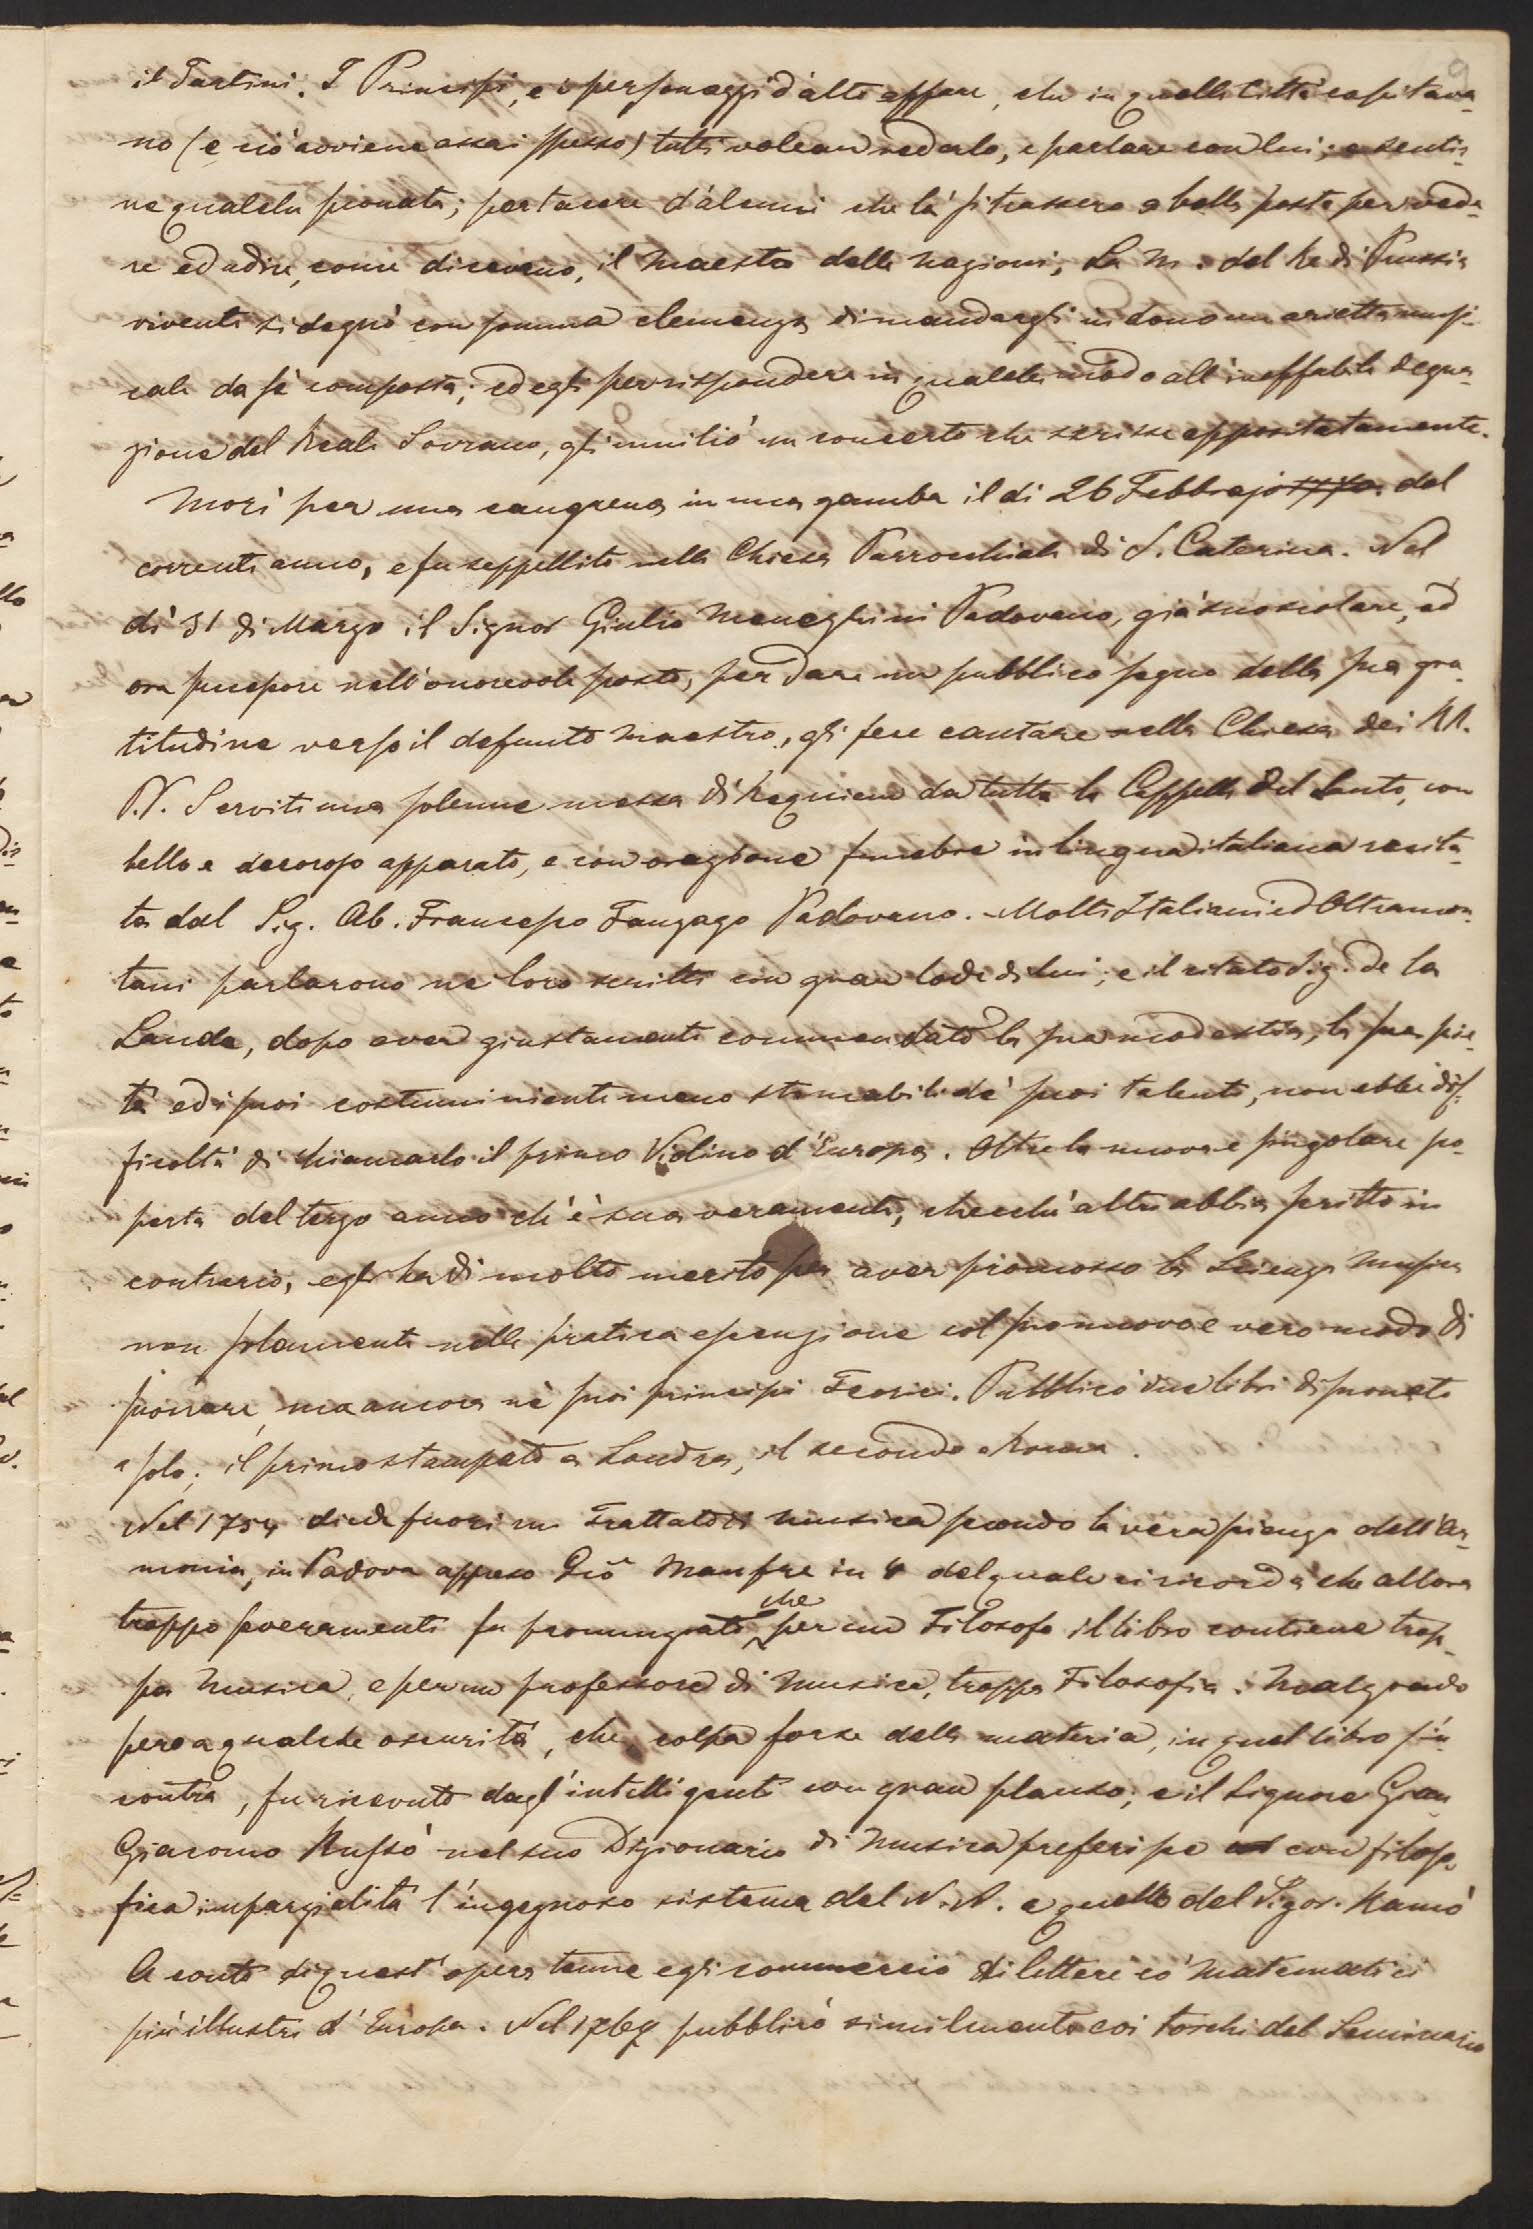 9
il Tartini. I Principi, e i personaggi d'alto affare, che in quella Città capitava-
no (e ciò avviene assai spesso) tutti volean vederlo, e parlare con lui; e sentir-
ne qualche suonata; per tacere d'alcuni che là si trassero a bella posta per vede-
re ed udire, come dicevano, il maestro delle nazioni. La M. del Re di Prussia
vivente si degnò con somma clemenza di mandargli in dono un arietta musi-
cale da sè composta; ed egli per rispondere in qualche modo all'ineffabile degna-
zione del Reale Sovrano, gl'inuiliò un concerto che scrisse appositatamente.
Morì per una cangrena in una gamba il di 26 Febbrajo del
corrente anno, e fu seppellito nella Chiesa Parrocchiale di S. Caterina. Nel
dì 31 di Marzo il Signor Giulio Meneghini Padovano, già suo scolare, ed
ora sucesore nell'onorevole posto, per dare un pubblico segno della sua gra-
titudine verso il defunto maestro, gli fece cantare nella Chiesa dei RR.
P.P. Serviti una solenne messa di Requiem da tutta la Cappella del Santo, con
bello e decoroso apparato, e con orazione funebre in lingua italiana recita-
ta dal Sig. Ab. Francesco Fanzago Padovano. Molti Italiani ed Oltramon-
tani parlarono ne' loro scritti con gran lode di lui; e il citato Sig. De la
Lande, dopo aver giustamente commendato la sua modestia, la sua pie-
tà ed i suoi costumi niente meno stimabili de' suoi talenti, non ebbe dif-
ficoltà di chiamarlo il primo Violino d'Europa. Oltre la nuova e singolare sco-
perta del terzo suono ch'è sua veramente, checchè altri abbia scritto in
contrario, egli ha di molto merito per aver promosso la Scienza Musica
non solamente nella pratica esecuzione col suo nuovo e vero modo di
suonare, ma ancora ne' suoi principi Teorici. Pubblicò due libri di suonate
a solo; il primo stampato a Londra, il secondo a Roma.
Nel 1754 diede fuori un Trattato di musica secondo la vera scienza dell'Ar-
monia, in Padova appresso Gio Manfre in 4 del quale ci ricorda che allora
troppo severamente fu pronunziato che per un Filosofo il libro contiene trop-
pa musica, e per un professore di musica, troppa Filosofia. Malgrado
però a qualche oscurità, che colpa forse della materia, in quel libro s'in-
contra, fu ricevuto dagl'intelligenti con gran plauso; e il Signore Gian
Giacomo Russò nel suo Dizionario di musica preferisce con filoso-
fica imparzialità l'ingegnoso sistema del N.A. a quello del Sigor. Ramò
A conto di quest'opera tenne egli commercio di lettere co' matematici
più illustri d'Europa. Nel 1767 pubblicò similmente coi torchi del Seminario